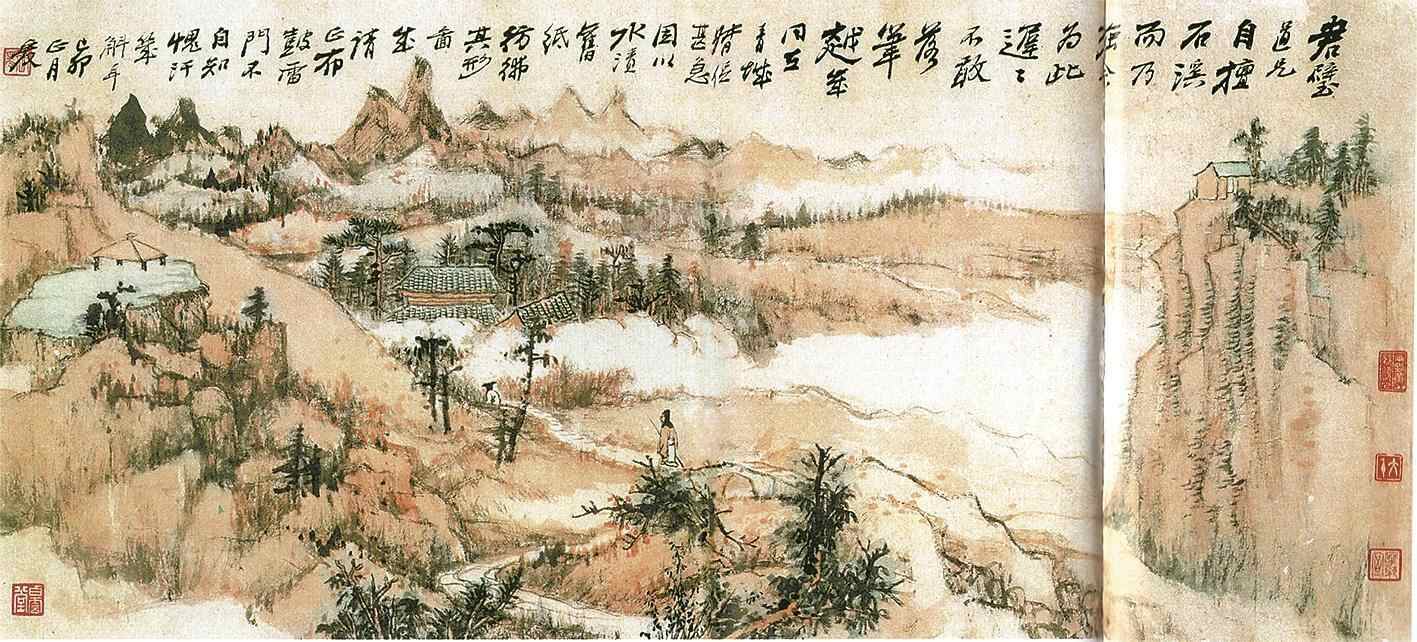 君璧
道兄
自擅
石溪
而乃
為此
遲〻
不敢
落
筆
越年
同在
青城
甚急
因以
水漬
舊紙
彷彿
其形
成
請
正布
鼓雷
門不
自知
愧汗
己卯
正月
爰